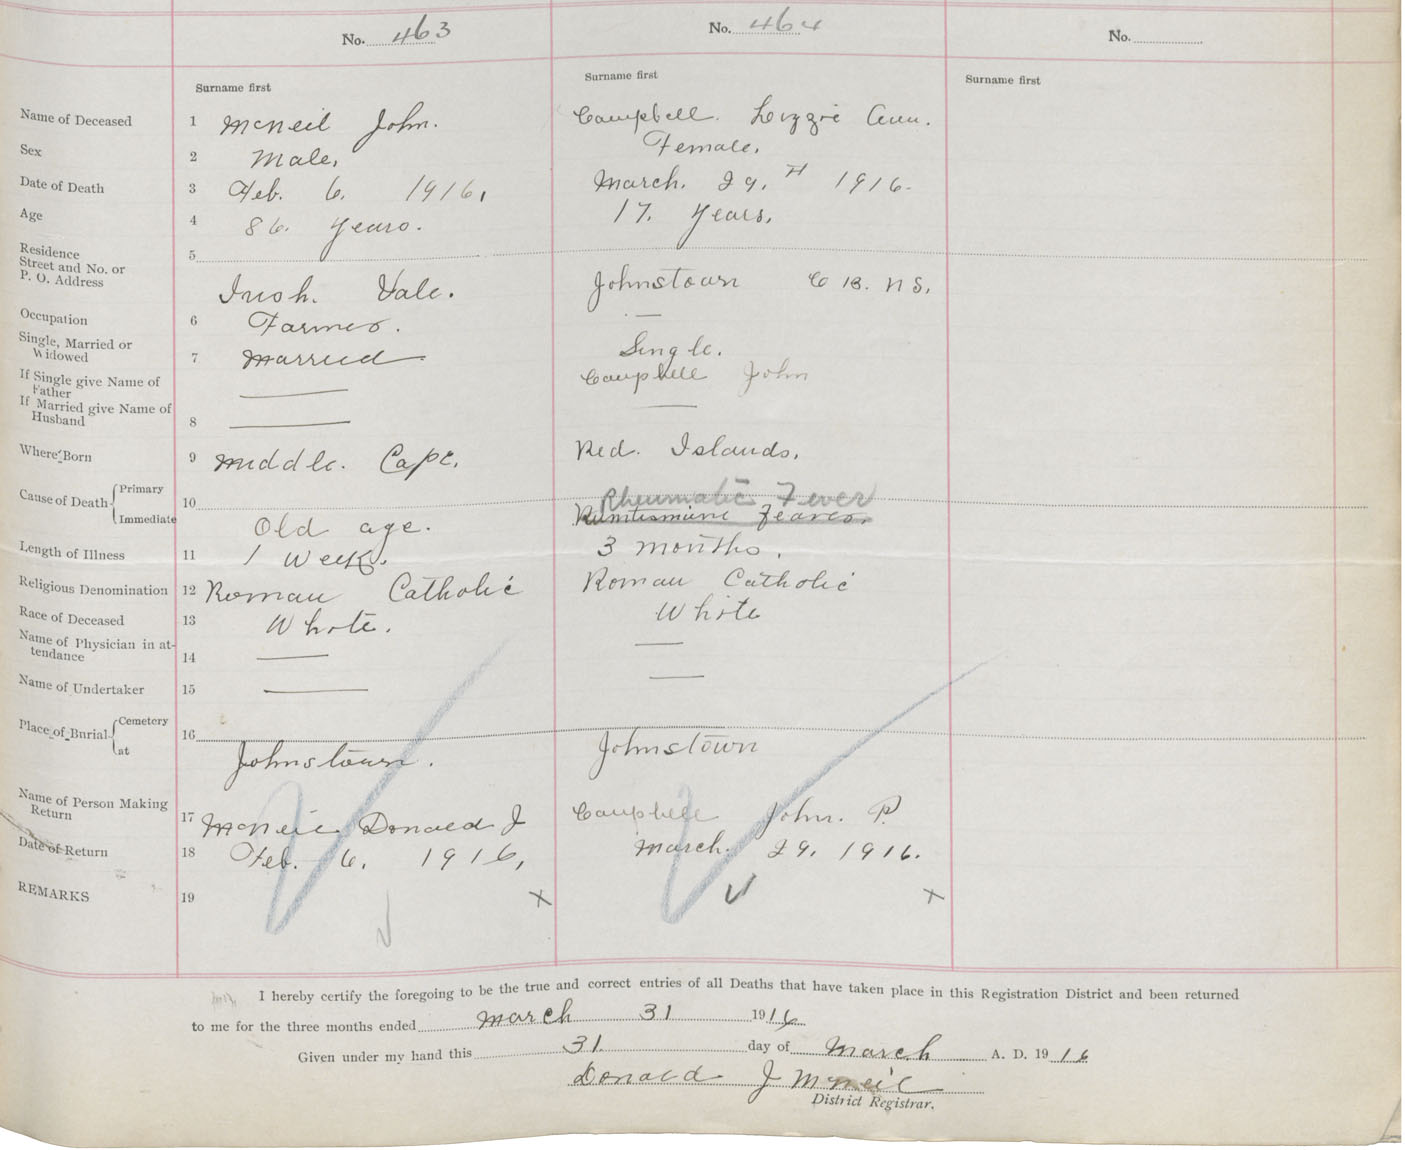 No. 463
No. 464
No.
Surname first
Surname first
Surname first
Name of Deceased 1 McNeil John. Campbell. Lizzie Ann.
Sex 2 Male, Female.
Date of Death 3 Feb. 6. 1916, March. 29. 1916-
Age 4 86. Years. 17. Years,
Residence
Street and No. or
P. O. Address
5 Irish. Vale. Johnstown C B. NS.
Occupation 6 Farmer. —
Single, Married or
Widowed
7 Married Single.
If Single give Name of
Father
— Campbell John
If Married give Name of
Husband
8 — —
Where Born 9 Middle. Cape. Red. Islands,
Cause of Death { Primary
Immediate
10 Rheumatic Fever
Old age.
Length of Illness 11 1 Week. 3 Months.
Religious Denomination 12 Roman Catholic Roman Catholic
Race of Deceased 13 White. White
Name of Physician in at-
tendance
14 — —
Name of Undertaker 15 — —
Place of Burial { Cemetery
at
16 Johnstown. Johnstown
Name of Person Making
Return
17 McNeil Donald J Campbell John. P.
Date of Return 18 Feb. 6. 1916, March. 29. 1916.
REMARKS 19 x x
I hereby certify the foregoing to be the true and correct entries of all Deaths that have taken place in this Registration District and been returned
to me for the three months ended March 31 1916
Given under my hand this 31 day of March A. D. 1916
Donald J McNeil
District Registrar.